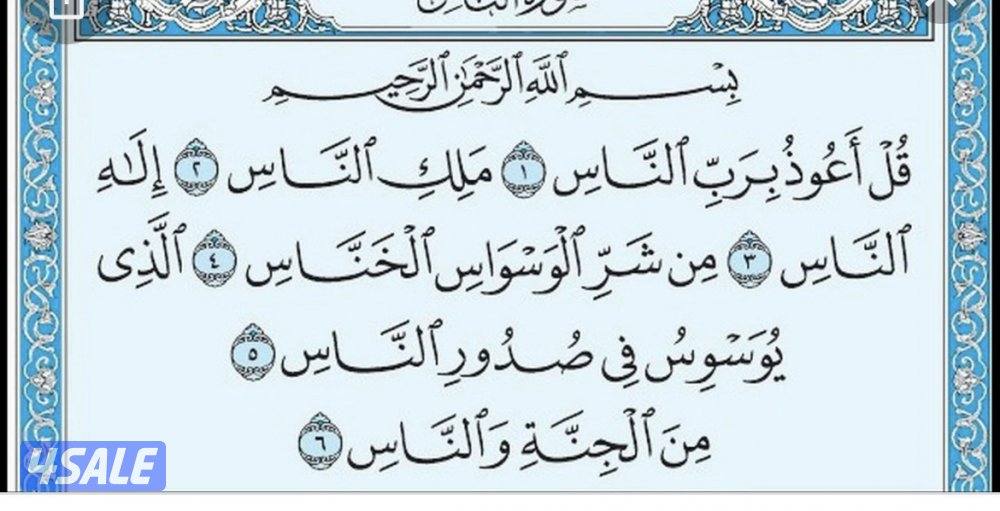 سورة الناس
بِسْمِ اللَّهِ الرَّحْمَٰنِ الرَّحِيمِ
قُلْ أَعُوذُ بِرَبِّ النَّاسِ ١ مَلِكِ النَّاسِ ٢ إِلَٰهِ
النَّاسِ ٣ مِن شَرِّ الْوَسْوَاسِ الْخَنَّاسِ ٤ الَّذِي
يُوَسْوِسُ فِي صُدُورِ النَّاسِ ٥
مِنَ الْجِنَّةِ وَالنَّاسِ ٦
4SALE